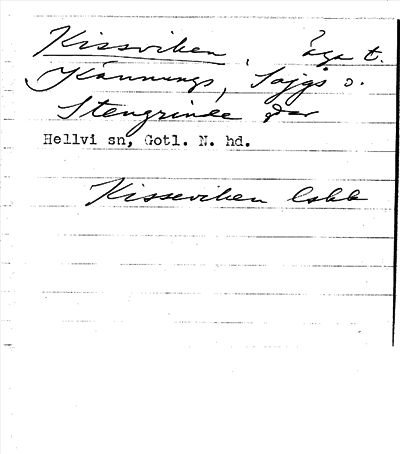 Kissviken, äga t.
Kännungs, Sajgs o.
Stengrinde gdar
Hellvi sn, Gotl. N. hd.
Kisseviken Eskb